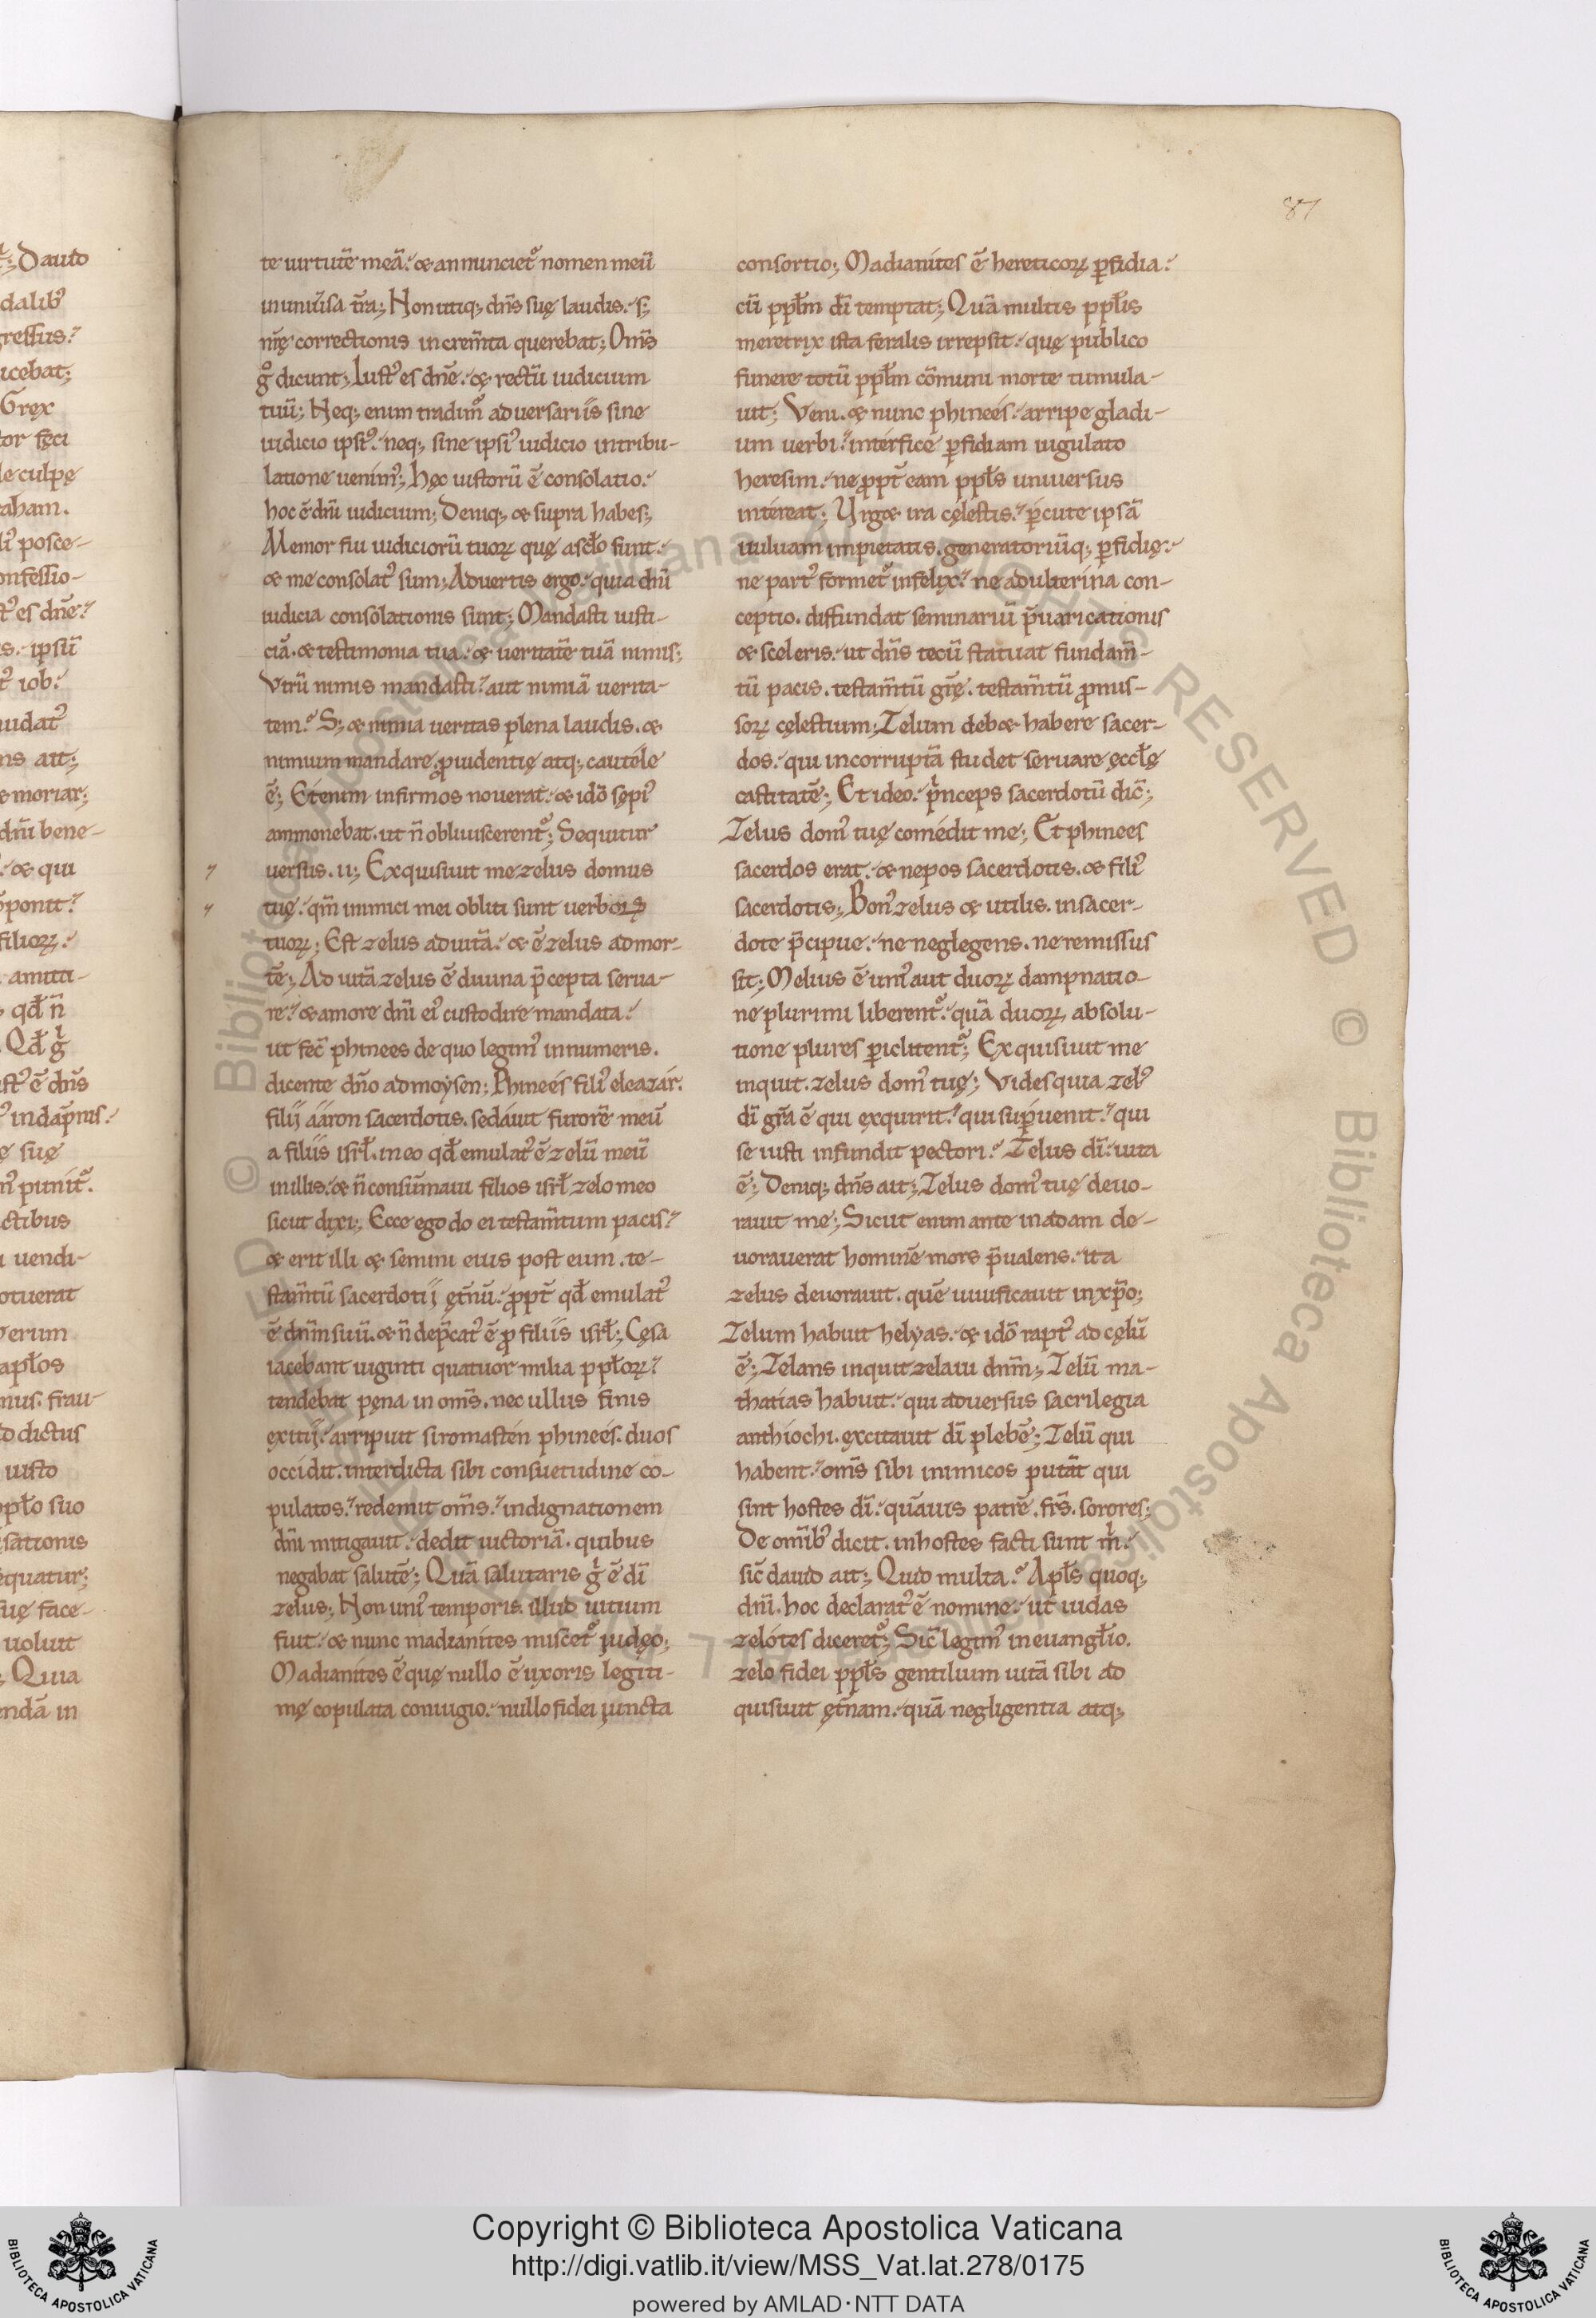 87
te uirtutē meā. & annunciet᷑ nomen meū
in uniūsa t̄ra; Non utiq; dn̄s suę laudis. s;
nr̄ę correctionis increm̄ta querebat; Om̄s
gͦ dicunt; Iustꝰ es dn̄e. & rectū iudicium
tuū; Neq; enim tradimꝰ aduersariis sine
iudicio ipsiꝰ. neq; sine ipsiꝰ iudicio in tribu-
latione uenimꝰ; hęc iustorū ē consolatio.
hoc ē dn̄i iudicium; Deniq; & supra habes;
Memor fui iudiciorū tuoꝝ quę a scło sunt.
& me consolatꝰ sum; Aduertis ergo. quia dn̄i
iudicia consolationis sunt; Mandasti iusti-
ciā. & testimonia tua. & ueritatē tuā nimis;
Vtrū nimis mandasti? aut nimiā uerita-
tem? S; & nimia ueritas plena laudis. &
nimium mandare. ꝓuidentię atq; cautele
ē; Etenim infirmos nouerat. & idō sępiꝰ
ammonebat. ut n̄ obliuiscerent᷑; Sequitur
uersus. ii; Exquisiuit me zelus domus
tuę. qm̄ inimici mei obliti sunt uerbois
tuoꝝ; Est zelus ad uitā. & ē zelus ad mor-
tē; Ad uitā zelus ē diuina p̄cepta serua-
re. & amore dn̄i eiꝰ custodire mandata.
ut fec̄ phinees de quo legimꝰ in numeris.
dicente dn̄o ad moysen; Phinees filiꝰ eleazar.
filij aaron sacerdotis. sedauit furorē meū
a filiis isrł. in eo qđ emulatꝰ ē zelū meū
in illis. & n̄ consūmaui filios isrł zelo meo
sicut dixi; Ecce ego do ei testam̄tum pacis.
& erit illi & semini eius post eum. te-
stam̄tū sacerdotij ęt̄nū. ꝓpt̄ qđ emulatꝰ
ē dn̄m suū. & n̄ dep̄catꝰ ē ꝓ filiis isrł; Cęsa
iacebant uiginti quatuor milia ppłoꝝ.
tendebat pęna in om̄s. nec ullus finis
exitij. arripuit siromasten phinees. duos
occidit. interdicta sibi consuetudine co-
pulatos. redemit om̄s. indignationem
dn̄i mitigauit. dedit uictoriā. quibus
negabat salutē; Quā salutaris gͥ ē dī
zelus; Non uniꝰ temporis illud uitium
fuit. & nunc madianites miscet᷑ iudęo;
Madianites ē quę nullo ē uxoris legiti-
mę copulata coniugio. nullo fidei iuncta
consortio; Madianites ē hereticoꝝ ꝑfidia.
cū ppłm dī temptat; Quā multis ppłis
meretrix ista feralis irrepsit. quę publico
funere totū ppłm cōmuni morte tumula-
uit; Veni. & nunc phinees. arripe gladi-
um uerbi. interfice ꝑfidiam iugulato
heresim. ne ꝓpt̄ eam ppłs uniuersus
intereat; Urg& ira cęlestis. ꝑcute ipsā
uuluam impietatis. generatoriūq; ꝑfidię.
ne partꝰ formet᷑ infelix. ne adulterina con-
ceptio. diffundat seminariū p̄uaricationis
& sceleris. ut dn̄s tecū statuat fundam̄-
tū pacis. testam̄tū gr̄ę. testam̄tū ꝓmis-
soꝝ cęlestium; Zelum deb& habere sacer-
dos. qui incorruptā studet seruare ęccłę
castitatē; Et ideo. pͥnceps sacerdotū dic̄;
Zelus domꝰ tuę comedit me; Et phinees
sacerdos erat. & nepos sacerdotis. & filiꝰ
sacerdotis; Bonꝰ zelus & utilis. in sacer-
dote p̄cipue. ne neglegens. ne remissus
sit; Melius ē uniꝰ aut duoꝝ dampnatio-
ne plurimi liberent᷑. quā duoꝝ absolu-
tione plures ꝑiclitent᷑; Exquisiuit me
inquit. zelus domꝰ tuę; Vides quia zelꝰ
dī gr̄a ē qui exquirit. qui suꝑuenit. qui
se iusti infundit pectori. Zelus dī. uita
ē; Deniq; dn̄s ait; Zelus domꝰ tuę deuo-
rauit me; Sicut enim ante in adam de-
uorauerat hominē mors p̄ualens. ita
zelus deuorauit. quē uiuificauit in xp̄o;
Zelum habuit helyas. & idō raptꝰ ad cęlū
ē; Zelans inquit zelaui dn̄m; Zelū ma-
thatias habuit. qui aduersus sacrilegia
anthiochi. excitauit dī plebē; Zelū qui
habent. om̄s sibi inimicos putāt qui
sint hostes dī. quāuis patrē. fr̄s. sorores;
De om̄ibꝰ dicit. in hostes facti sunt mͥ.
sic̄ dauid ait; Quid multa? Apłs quoq;
dn̄i. hoc declaratꝰ ē nomine. ut iudas
zelotes diceret᷑; Sic̄ legimꝰ in euangło.
zelo fidei ppłs gentilium uitā sibi ad
quisiuit ęt̄nam. quā negligentia atq;
Copyright © Biblioteca Apostolica Vaticana
http://digi.vatlib.it/view/MSS_Vat.lat.278/0175
powered by AMLAD·NTT DATA